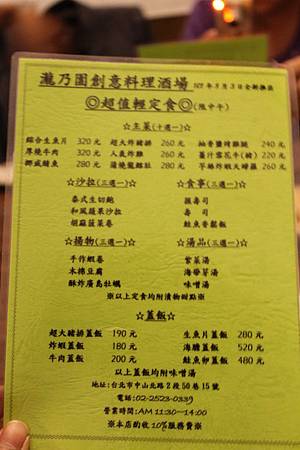 瀧乃園創意料理酒場 101年5月3日全新推出
◎超值輕定食◎(限中午)
☆主菜(十選一)☆
綜合生魚片 320元 超大炸豬排 260元 柚香鹽烤雞腿 240元
厚燒牛肉 320元 人氣炸雞 260元 薑汁雪花牛(豬) 220元
挪威鯖魚 280元 蒲燒龍鱺魚 280元 芋絲炸蝦天婦羅 260元
☆沙拉(三選一)☆ ☆食事(三選一)☆
泰式生切鮑 握壽司
和風蔬果沙拉 壽司
胡麻菠菜卷 鮭魚香鬆飯
☆揚物(三選一)☆ ☆湯品(三選一)☆
手作蝦卷 紫菜湯
木棉豆腐 海帶芽湯
酥炸廣島牡蠣 味噌湯
※以上定食均附漬物甜點※
☆蓋飯☆
超大豬排蓋飯 190元 生魚片蓋飯 280元
炸蝦蓋飯 180元 海膽蓋飯 520元
牛肉蓋飯 200元 鮭魚卵蓋飯 480元
以上蓋飯均附味噌湯
地址:台北市中山北路2段50巷15號
電話:02-2523-0339
營業時間:AM 11:30-14:00
※本店酌收10%服務費※